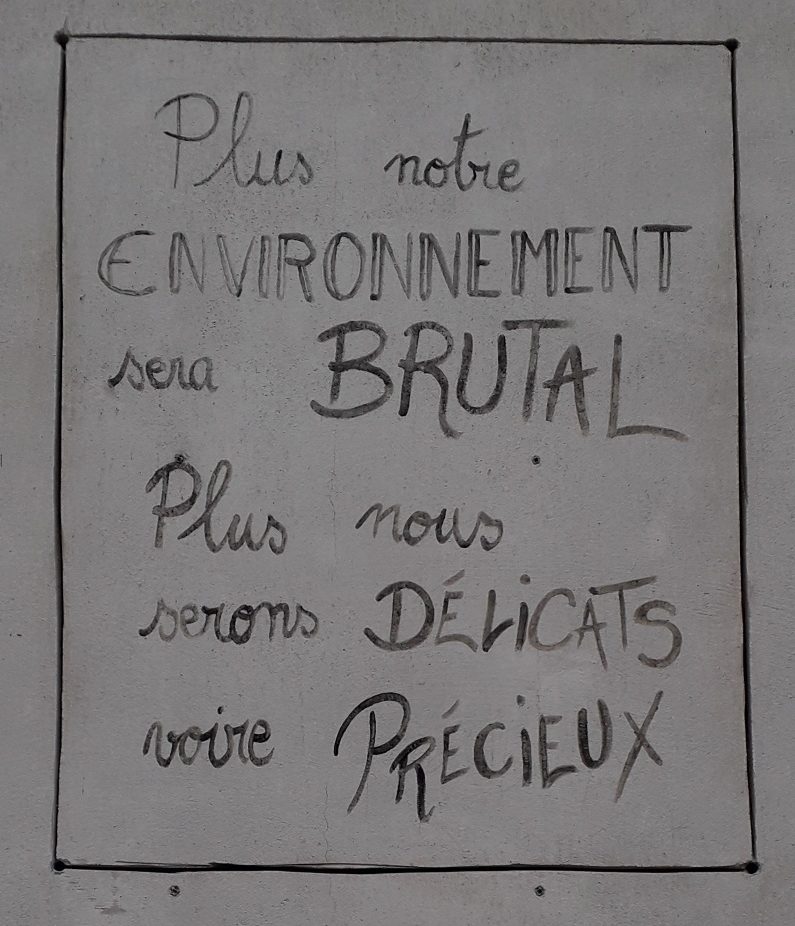 Plus notre
ENVIRONNEMENT
sera BRUTAL
Plus nous
serons DÉLiCATS
voire PRÉCiEUX